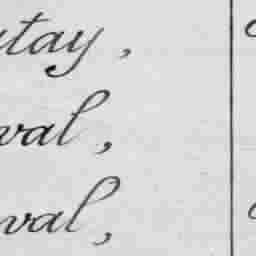 utay,
val,
val,